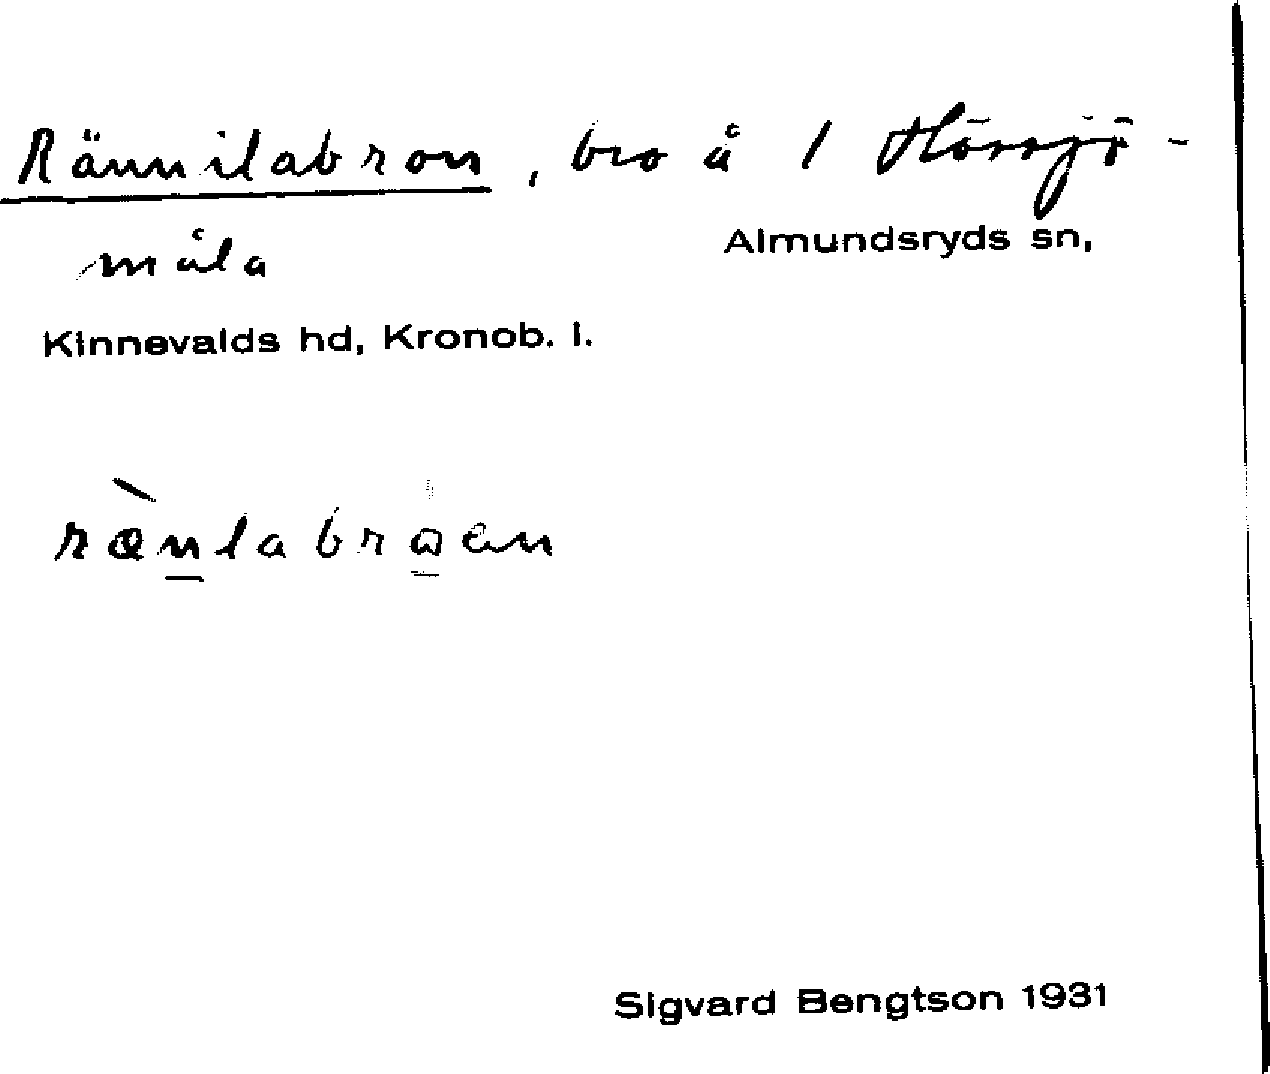 Rännilabron, bro å 1 Hörsjö-
måla
Almundsryds sn,
Kinnevalds hd, Kronob. l.
rænlabrωen
Sigvard Bengtson 1931